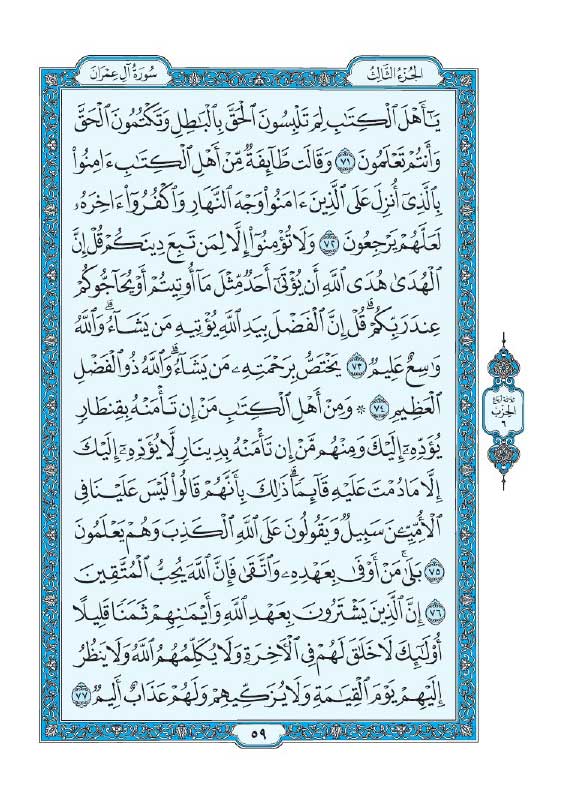 الجزء الثالث
سورة آل عمران
يَـٰٓأَهْلَ ٱلْكِتَـٰبِ لِمَ تَلْبِسُونَ ٱلْحَقَّ بِٱلْبَـٰطِلِ وَتَكْتُمُونَ ٱلْحَقَّ
وَأَنتُمْ تَعْلَمُونَ ٧١ وَقَالَت طَّآئِفَةٌ مِّنْ أَهْلِ ٱلْكِتَـٰبِ ءَامِنُوا۟
بِٱلَّذِىٓ أُنزِلَ عَلَى ٱلَّذِينَ ءَامَنُوا۟ وَجْهَ ٱلنَّهَارِ وَٱكْفُرُوٓا۟ ءَاخِرَهُۥ
لَعَلَّهُمْ يَرْجِعُونَ ٧٢ وَلَا تُؤْمِنُوٓا۟ إِلَّا لِمَن تَبِعَ دِينَكُمْ قُلْ إِنَّ
ٱلْهُدَىٰ هُدَى ٱللَّهِ أَن يُؤْتَىٰٓ أَحَدٌ مِّثْلَ مَآ أُوتِيتُمْ أَوْ يُحَآجُّوكُمْ
عِندَ رَبِّكُمْ ۗ قُلْ إِنَّ ٱلْفَضْلَ بِيَدِ ٱللَّهِ يُؤْتِيهِ مَن يَشَآءُ ۗ وَٱللَّهُ
وَٰسِعٌ عَلِيمٌ ٧٣ يَخْتَصُّ بِرَحْمَتِهِۦ مَن يَشَآءُ ۗ وَٱللَّهُ ذُو ٱلْفَضْلِ
ٱلْعَظِيمِ ٧٤ ۞ وَمِنْ أَهْلِ ٱلْكِتَـٰبِ مَنْ إِن تَأْمَنْهُ بِقِنطَارٍ
يُؤَدِّهِۦٓ إِلَيْكَ وَمِنْهُم مَّنْ إِن تَأْمَنْهُ بِدِينَارٍ لَّا يُؤَدِّهِۦٓ إِلَيْكَ
إِلَّا مَا دُمْتَ عَلَيْهِ قَآئِمًا ۗ ذَٰلِكَ بِأَنَّهُمْ قَالُوا۟ لَيْسَ عَلَيْنَا فِى
ٱلْأُمِّيِّـۧنَ سَبِيلٌ وَيَقُولُونَ عَلَى ٱللَّهِ ٱلْكَذِبَ وَهُمْ يَعْلَمُونَ
٧٥ بَلَىٰ مَنْ أَوْفَىٰ بِعَهْدِهِۦ وَٱتَّقَىٰ فَإِنَّ ٱللَّهَ يُحِبُّ ٱلْمُتَّقِينَ
٧٦ إِنَّ ٱلَّذِينَ يَشْتَرُونَ بِعَهْدِ ٱللَّهِ وَأَيْمَـٰنِهِمْ ثَمَنًا قَلِيلًا
أُو۟لَـٰٓئِكَ لَا خَلَـٰقَ لَهُمْ فِى ٱلْـَٔاخِرَةِ وَلَا يُكَلِّمُهُمُ ٱللَّهُ وَلَا يَنظُرُ
إِلَيْهِمْ يَوْمَ ٱلْقِيَـٰمَةِ وَلَا يُزَكِّيهِمْ وَلَهُمْ عَذَابٌ أَلِيمٌ ٧٧
ثلاثة أرباع
الحزب
٦
٥٩